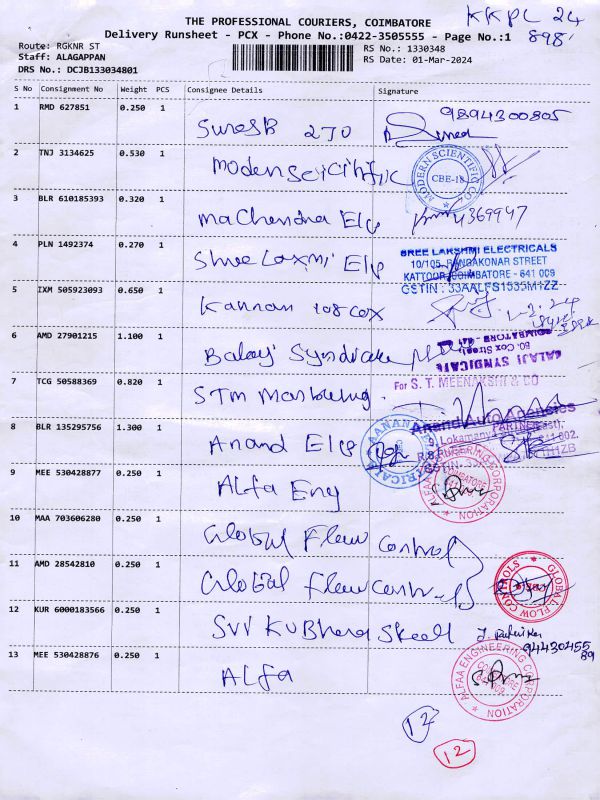 KKPL 24
898
THE PROFESSIONAL COURIERS, COIMBATORE
Delivery Runsheet - PCX - Phone No.:0422-3505555 - Page No.:1
Route: RGKNR ST
RS No.: 1330348
Staff: ALAGAPPAN
RS Date: 01-Mar-2024
DRS No.: DCJB133034801
S No Consignment No Weight PCS Consignee Details Signature
1 RMD 627851 0.250 1 9894300805
2 TNJ 3134625 0.530 1 Moden Scientific MODERN SCIENTIFIC CO. CBE-18
3 BLR 610185393 0.320 1 Machendra Ele 4369947
4 PLN 1492374 0.270 1 Shree Laxmi Ele
SREE LAKSHMI ELECTRICALS
10/105, RANGAKONAR STREET
KATTOOR, COIMBATORE - 641 009
GSTIN : 33AALFS1535M1ZZ
5 IXM 505923093 0.650 1 Kannan 108 Cox 1-3-24
6 AMD 27901215 1.100 1 Balaji Syndicate
BALAJI SYNDICATE
80, Cox Street
COIMBATORE - 641
7 TCG 50588369 0.820 1 STM Marketing
For S. T. MEENAKSHI & CO
PARTNER
8 BLR 135295756 1.300 1 Anand Ele
Anand Auto Agencies
9 MEE 530428877 0.250 1 Alfa Eng
ALFAA ENGINEERING CORPORATION
10 MAA 703606280 0.250 1 Global Flow Control
11 AMD 28542810 0.250 1 Global Flow Controls
GLOBAL FLOW CONTROLS
12 KUR 6000183566 0.250 1 SVV Kubhera Steell
94430455
89
13 MEE 530428876 0.250 1 Alfa
ALFAA ENGINEERING CORPORATION
12
12